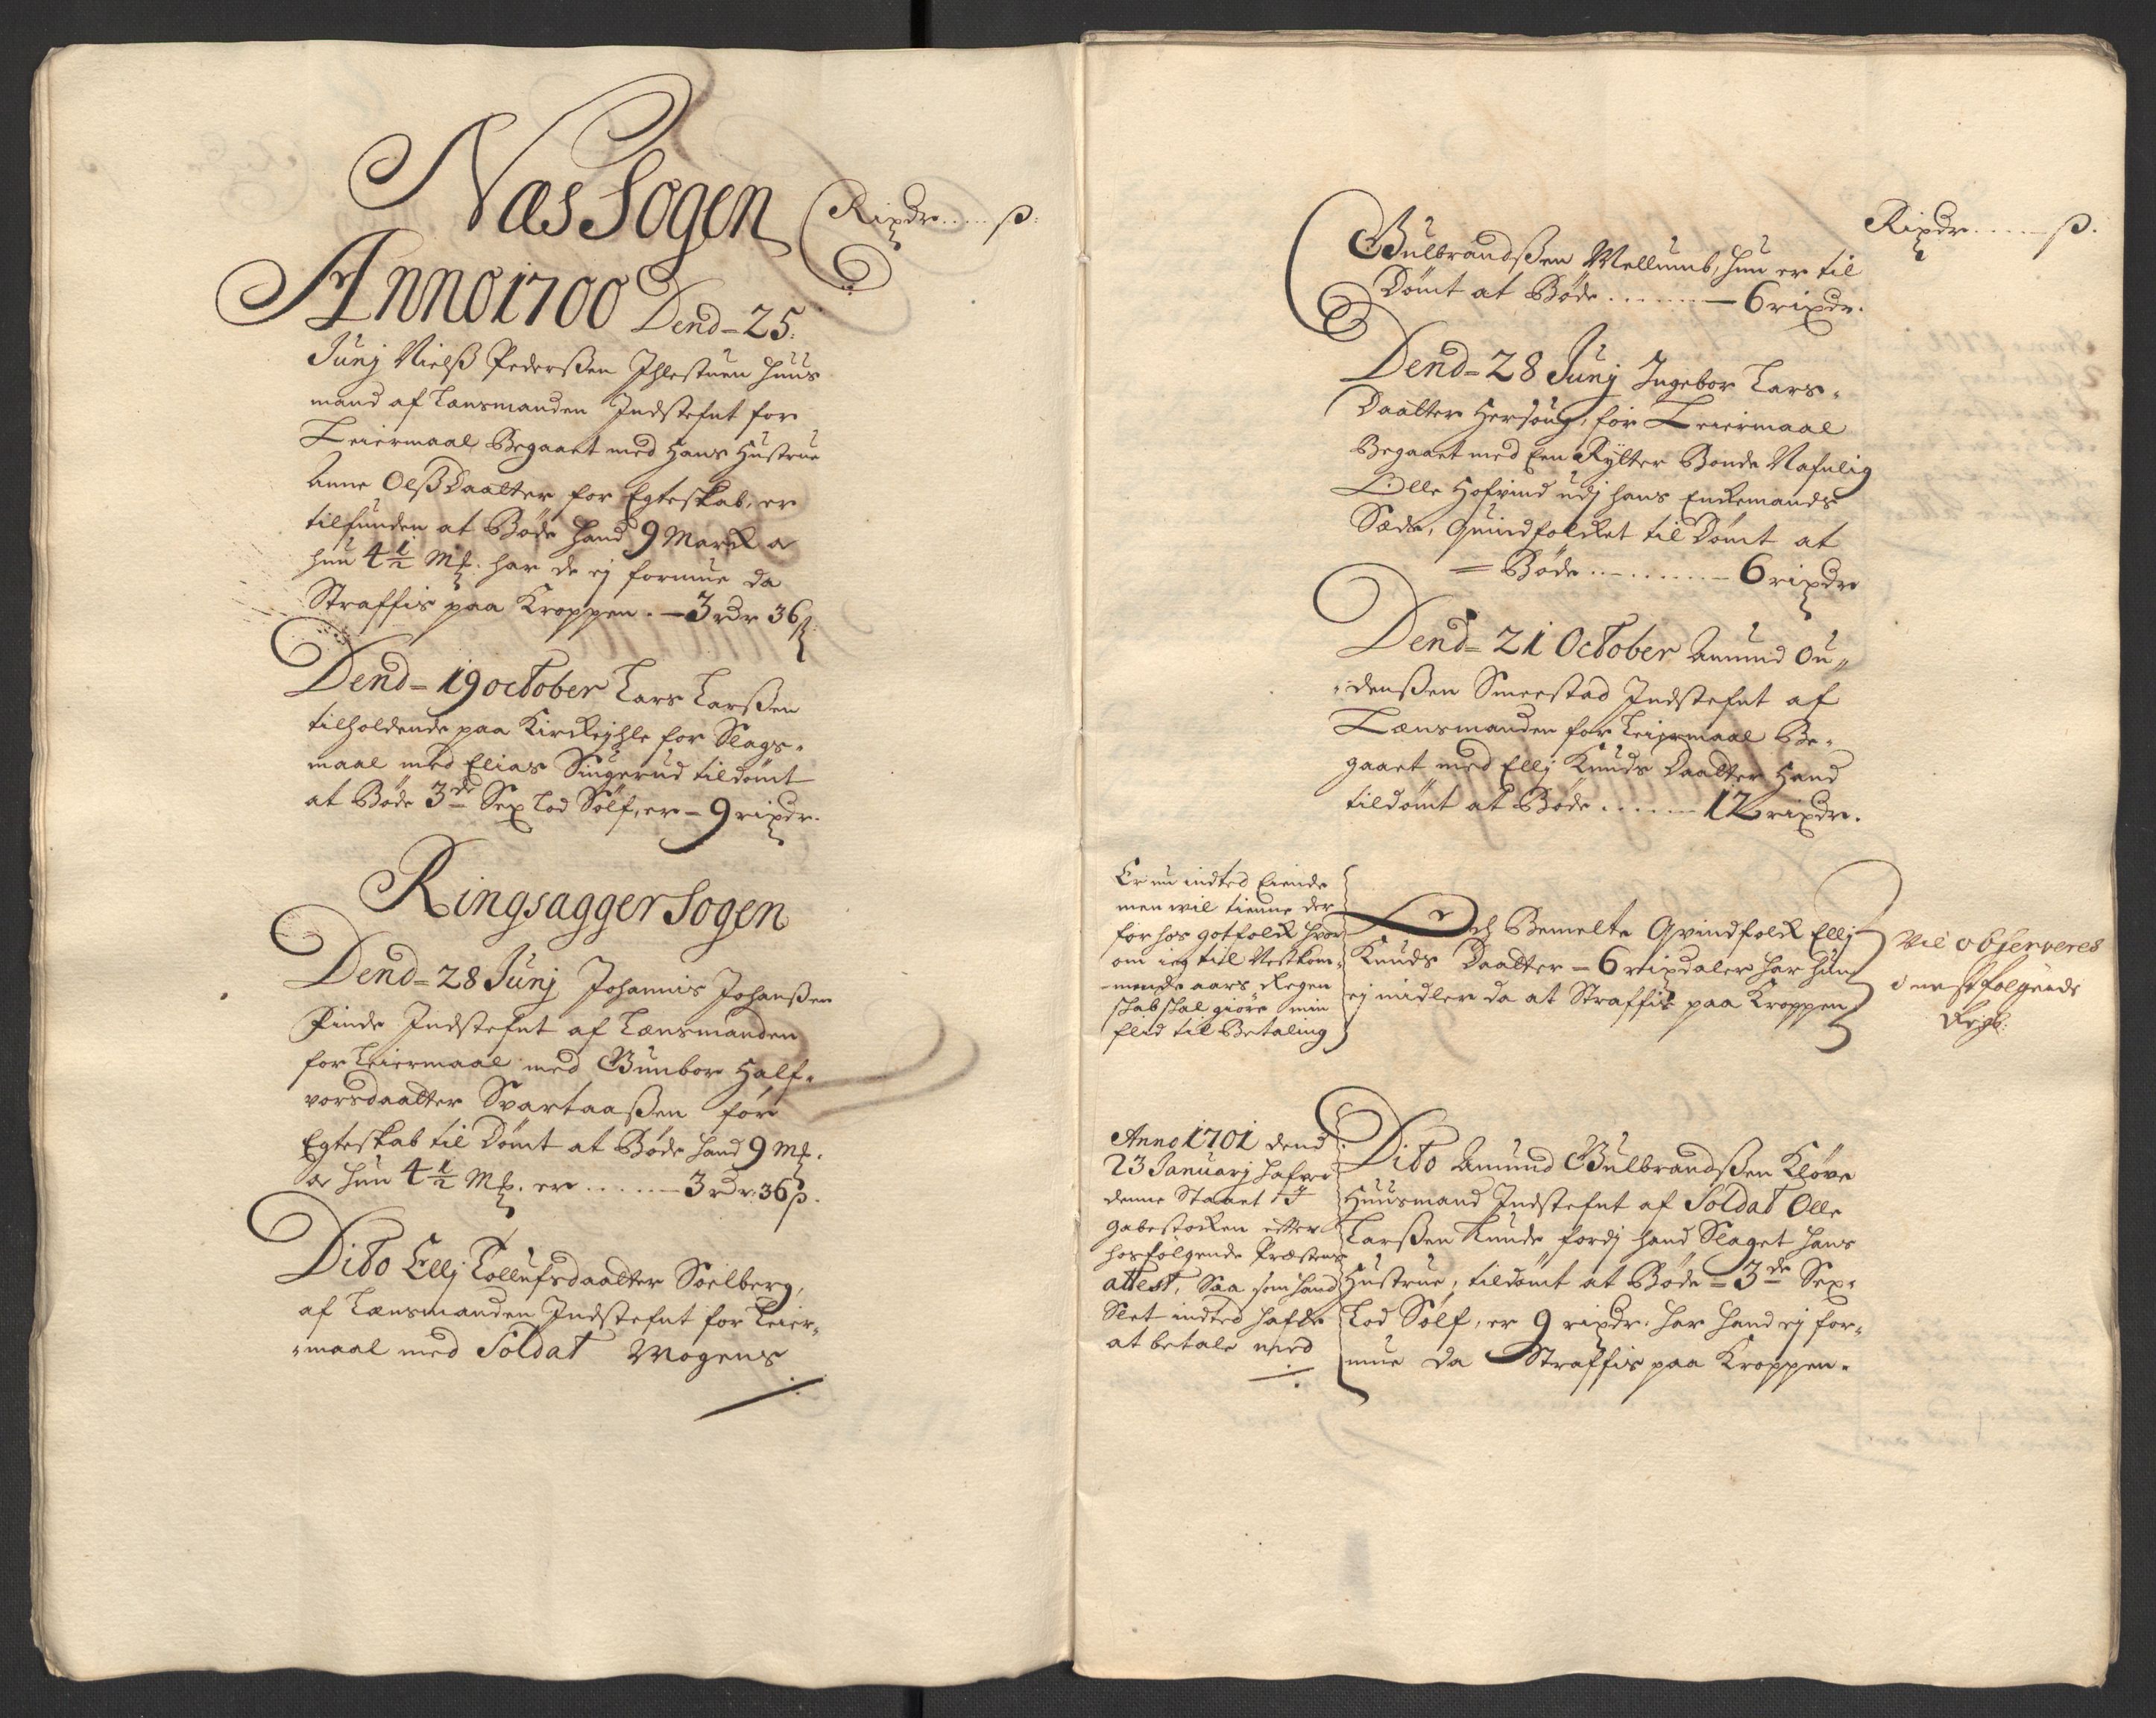 Næs Sogen
Ripdr.....ß:
Anno 1700 Dend=25.
Junj Nielß Pederßen Ihlestuen Huus
mand af Lensmanden Indstefnt for
Leiermaal Begaaet med Hans Hustrue
Anne OlßDaatter for Egteskab, er
tilfunden at Bøde hand 9 Marck a
hun 4 1/2 Mk. har de ej formue da
Straffis paa Kroppen.—3 rdr 36 ß
Dend=19 october Lars Larßen
tilholdende paa Kirckejhle for Slags-
maal med Elias Singerud tildømt
at Bøde 3de Sex Lod Sølf, er—9 ripdr.
Ringsagger Sogen
Dend=28 Junj Johannis Johanßen
Pinde Indstefnt af Lensmanden
for Leiermaal med Gunbor Half-
vorsdaatter Svartaaßen for
Egteskab til Dømt at Bøde hand 9 Mk.
a hun 4 1/2 Mk. er......—3 rdr. 36 ß.
Dito Ellj Tollufsdaatter Soelberg,
af Lensmanden Indstefnt for Leier-
-maal med Soldat Mogens
Ripdr.....ß.
Gulbrandßen Mellumb, hun er til
Dømt at Bøde.......—6 ripdr.
Dend=28 Junj Ingebor Lars-
Daatter Hersoug, for Leiermaal
Begaaet med Een Rytter Bonde Nafnlig
Olle Hofvind udj hans Enckemands
Sæde, Quindfolcket til Dømt at
=Bøde.........—6 ripdr
Dend=21 October Amund Ou-
-denßen Smeestad Indstefnt af
Lænsmanden for Leiermaal Be-
gaaet med Ellj Knuds Daatter Hand
tildømt at Bøde......—12 ripdr.
Er nu indted Eiende
men vil tienne der
for hos gotfolck hvor
om ieg till Nestkom-
-mende aars Regen
skab skal giøre min
flid til Betaling
Och Bemelte Qvindfolck Ellj
Knuds Daatter—6 ripdaler har hun
ej midler da at Straffis paa Kroppen
Vil observeres
i nestfølgende
Regb:
Anno 1701 dend
23 Januarj hafver
denne Staaet i
gabestocken efter
hosfølgende Præstens
attest, Saa som hand
Slet indted hafde
at betale med
Dito Amund Gulbrandßen Kløve
Huusmand Indstefnt af Soldat Olle
Larßen Kunde fordj hand Slaget hans
Hustrue, tildømt at Bøde=3de Sex-
Lod Sølf, er 9 ripdr. har hand ej for-
mue da Straffis paa Kroppen.